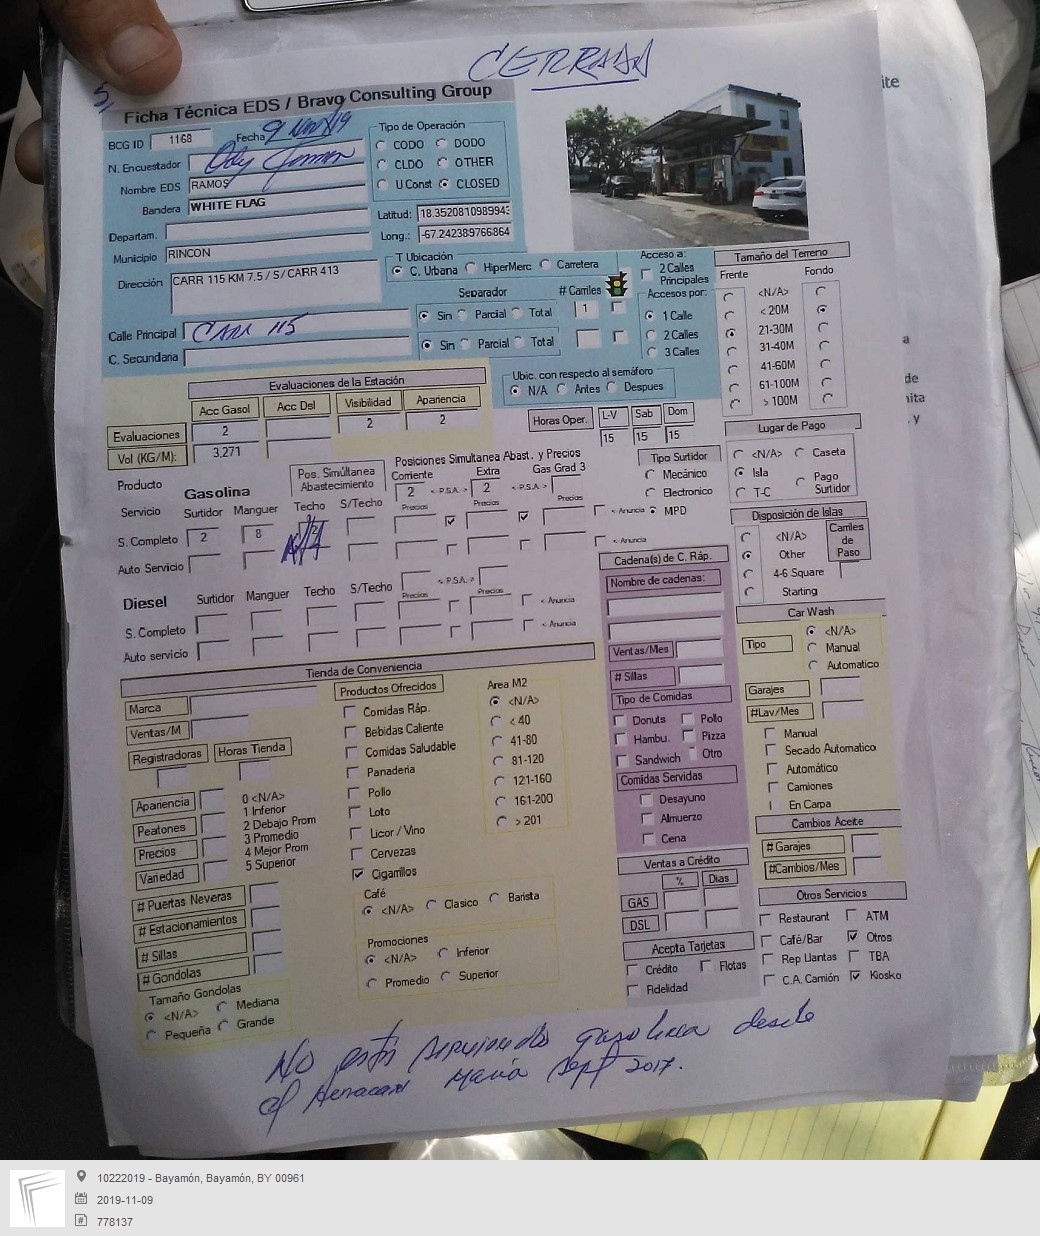 CERRADA
5,
Ficha Técnica EDS / Bravo Consulting Group
BCG ID 1168 Fecha 9 Nov/19
N. Encuestador
Nombre EDS RAMOS
Bandera WHITE FLAG
Departam.
Municipio RINCON
Dirección CARR 115 KM 7.5 / S/ CARR 413
Calle Principal CARR 115
C. Secundaria
Tipo de Operación
CODO DODO
CLDO OTHER
U Const CLOSED
Latitud: 18.3520810989943
Long.: -67.242389766864
T Ubicación
C. Urbana HiperMerc Carretera
Separador # Carriles
Sin Parcial Total 1
Sin Parcial Total
Acceso a:
2 Calles
Principales
Accesos por:
1 Calle
2 Calles
3 Calles
Ubic. con respecto al semáforo
N/A Antes Despues
Tamaño del Terreno
Frente Fondo
<N/A>
< 20M
21-30M
31-40M
41-60M
61-100M
> 100M
Evaluaciones de la Estación
Acc Gasol Acc Dsl Visibilidad Apariencia
Evaluaciones 2 2 2
Vol (KG/M): 3,271
Horas Oper. L-V Sab Dom
15 15 15
Lugar de Pago
<N/A> Caseta
Isla Pago
T-C Surtidor
Producto Gasolina
Pos. Simultánea
Abastecimiento
Posiciones Simultanea Abast. y Precios
Corriente Extra Gas Grad 3
2 <- P.S.A. -> 2 <- P.S.A. ->
Servicio Surtidor Manguer Techo S/Techo Precios Precios Precios
S. Completo 2 8 N/A <- Anuncia
Auto Servicio <- Anuncia
Tipo Surtidor
Mecánico
Electronico
MPD
Disposición de Islas
<N/A>
Other
4-6 Square
Starting
Carriles
de
Paso
Diesel Surtidor Manguer Techo S/Techo <- P.S.A. ->
Precios Precios
S. Completo <- Anuncia
Auto servicio <- Anuncia
Cadena(s) de C. Ráp.
Nombre de cadenas:
Ventas/Mes
# Sillas
Tipo de Comidas
Donuts Pollo
Hambu. Pizza
Sandwich Otro
Comidas Servidas
Desayuno
Almuerzo
Cena
Ventas a Crédito
% Dias
GAS
DSL
Acepta Tarjetas
Crédito Flotas
Fidelidad
Car Wash
Tipo <N/A>
Manual
Automatico
Garajes
#Lav/Mes
Manual
Secado Automatico
Automático
Camiones
En Carpa
Cambios Aceite
# Garajes
#Cambios/Mes
Otros Servicios
Restaurant ATM
Café/Bar Otros
Rep Llantas TBA
C.A. Camión Kiosko
Tienda de Conveniencia
Marca
Ventas/M
Registradoras Horas Tienda
Apariencia
Peatones
Precios
Variedad
0 <N/A>
1 Inferior
2 Debajo Prom
3 Promedio
4 Mejor Prom
5 Superior
# Puertas Neveras
# Estacionamientos
# Sillas
# Gondolas
Tamaño Gondolas
<N/A> Mediana
Pequeña Grande
Productos Ofrecidos
Comidas Ráp.
Bebidas Caliente
Comidas Saludable
Panaderia
Pollo
Loto
Licor / Vino
Cervezas
Cigarrillos
Area M2
<N/A>
< 40
41-80
81-120
121-160
161-200
> 201
Café
<N/A> Clasico Barista
Promociones
<N/A> Inferior
Promedio Superior
No está sirviendo gasolina desde
el Huracan María Sept 2017.
10222019 - Bayamón, Bayamón, BY 00961
2019-11-09
778137